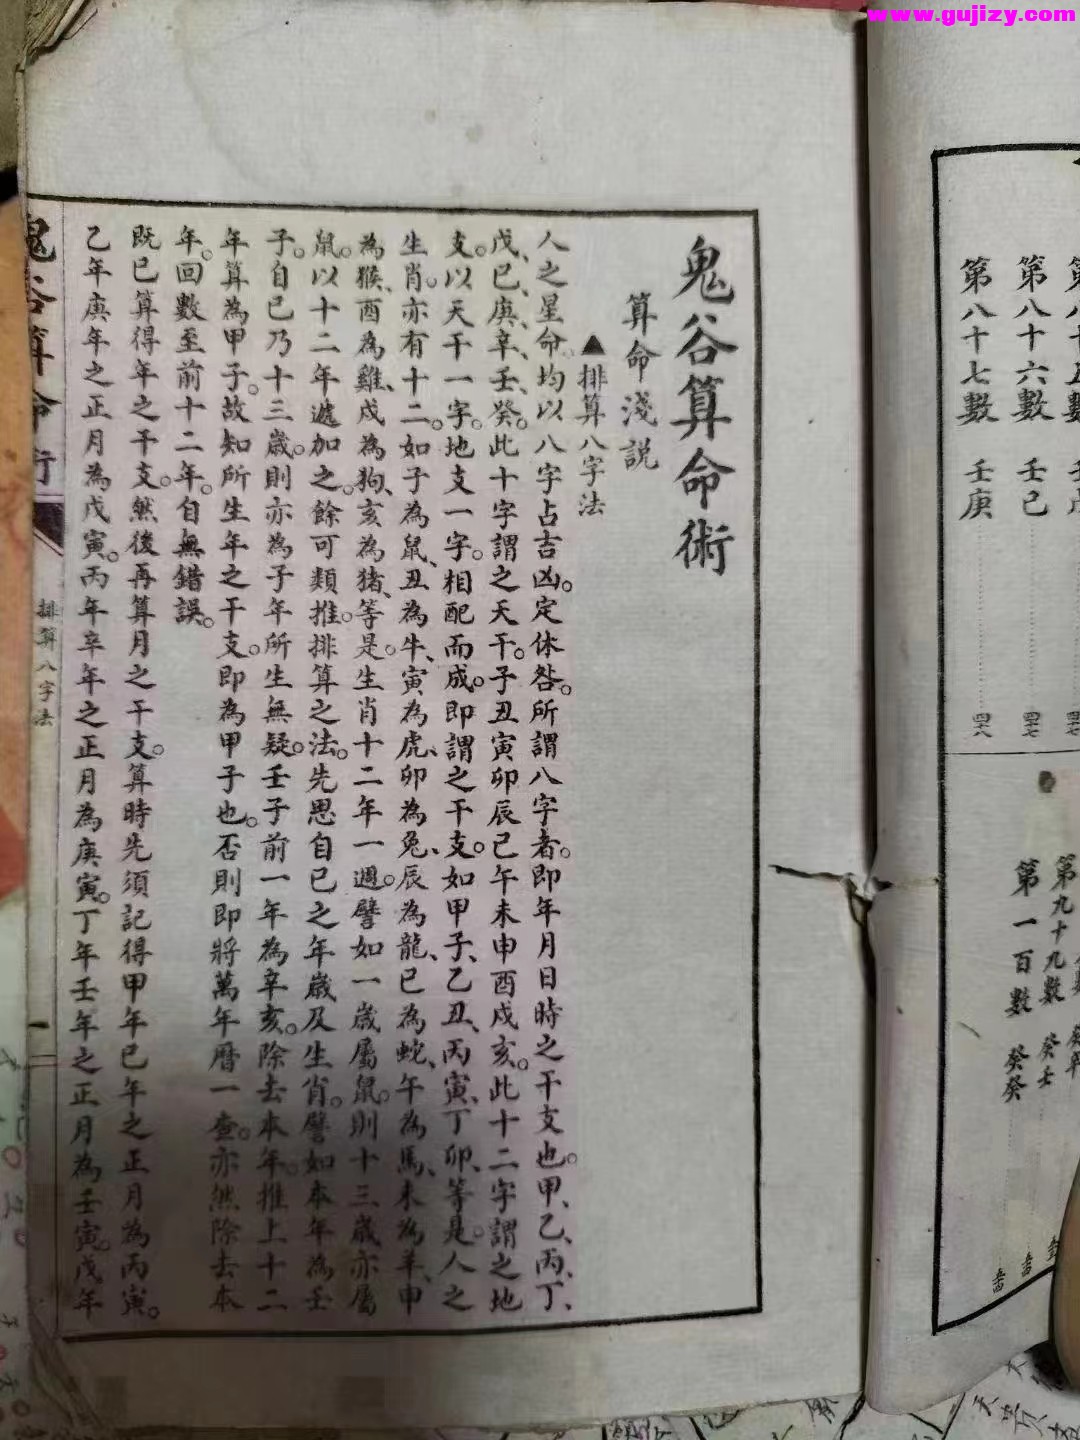 www.gujizy.com
第八十六數 壬己 四七
第八十七數 壬庚 四八
第九十九數 癸壬
第一百數 癸癸
鬼谷算命術
算命淺説
▲排算八字法
人之星命。均以八字占吉凶。定休咎。所謂八字者。即年月日時之干支也。甲、乙、丙、丁、
戊、己、庚、辛、壬、癸。此十字謂之天干。子丑寅卯辰巳午未申酉戌亥。此十二字謂之地
支。以天干一字。地支一字。相配而成。即謂之干支。如甲子、乙丑、丙寅、丁卯、等是。人之
生肖。亦有十二。如子為鼠、丑為牛、寅為虎、卯為兔、辰為龍、巳為蛇、午為馬、未為羊、申
為猴、酉為雞、戌為狗、亥為猪、等是。生肖十二年一週。譬如一歲屬鼠。則十三歲亦屬
鼠。以十二年遞加之。餘可類推。排算之法。先思自己之年歲及生肖。譬如本年為壬
子。自己乃十三歲。則亦為子年所生無疑。壬子前一年為辛亥。除去本年。推上十二
年算為甲子。故知所生年之干支。即為甲子也。否則即將萬年曆一查。亦無除去本
年。回數至前十二年。自無錯誤。
既已算得年之干支。然後再算月之干支。算時先須記得甲年巳年之正月為丙寅。
乙年庚年之正月為戊寅。丙年辛年之正月為庚寅。丁年壬年之正月為壬寅。戊年
鬼谷算命術
排算八字法
一